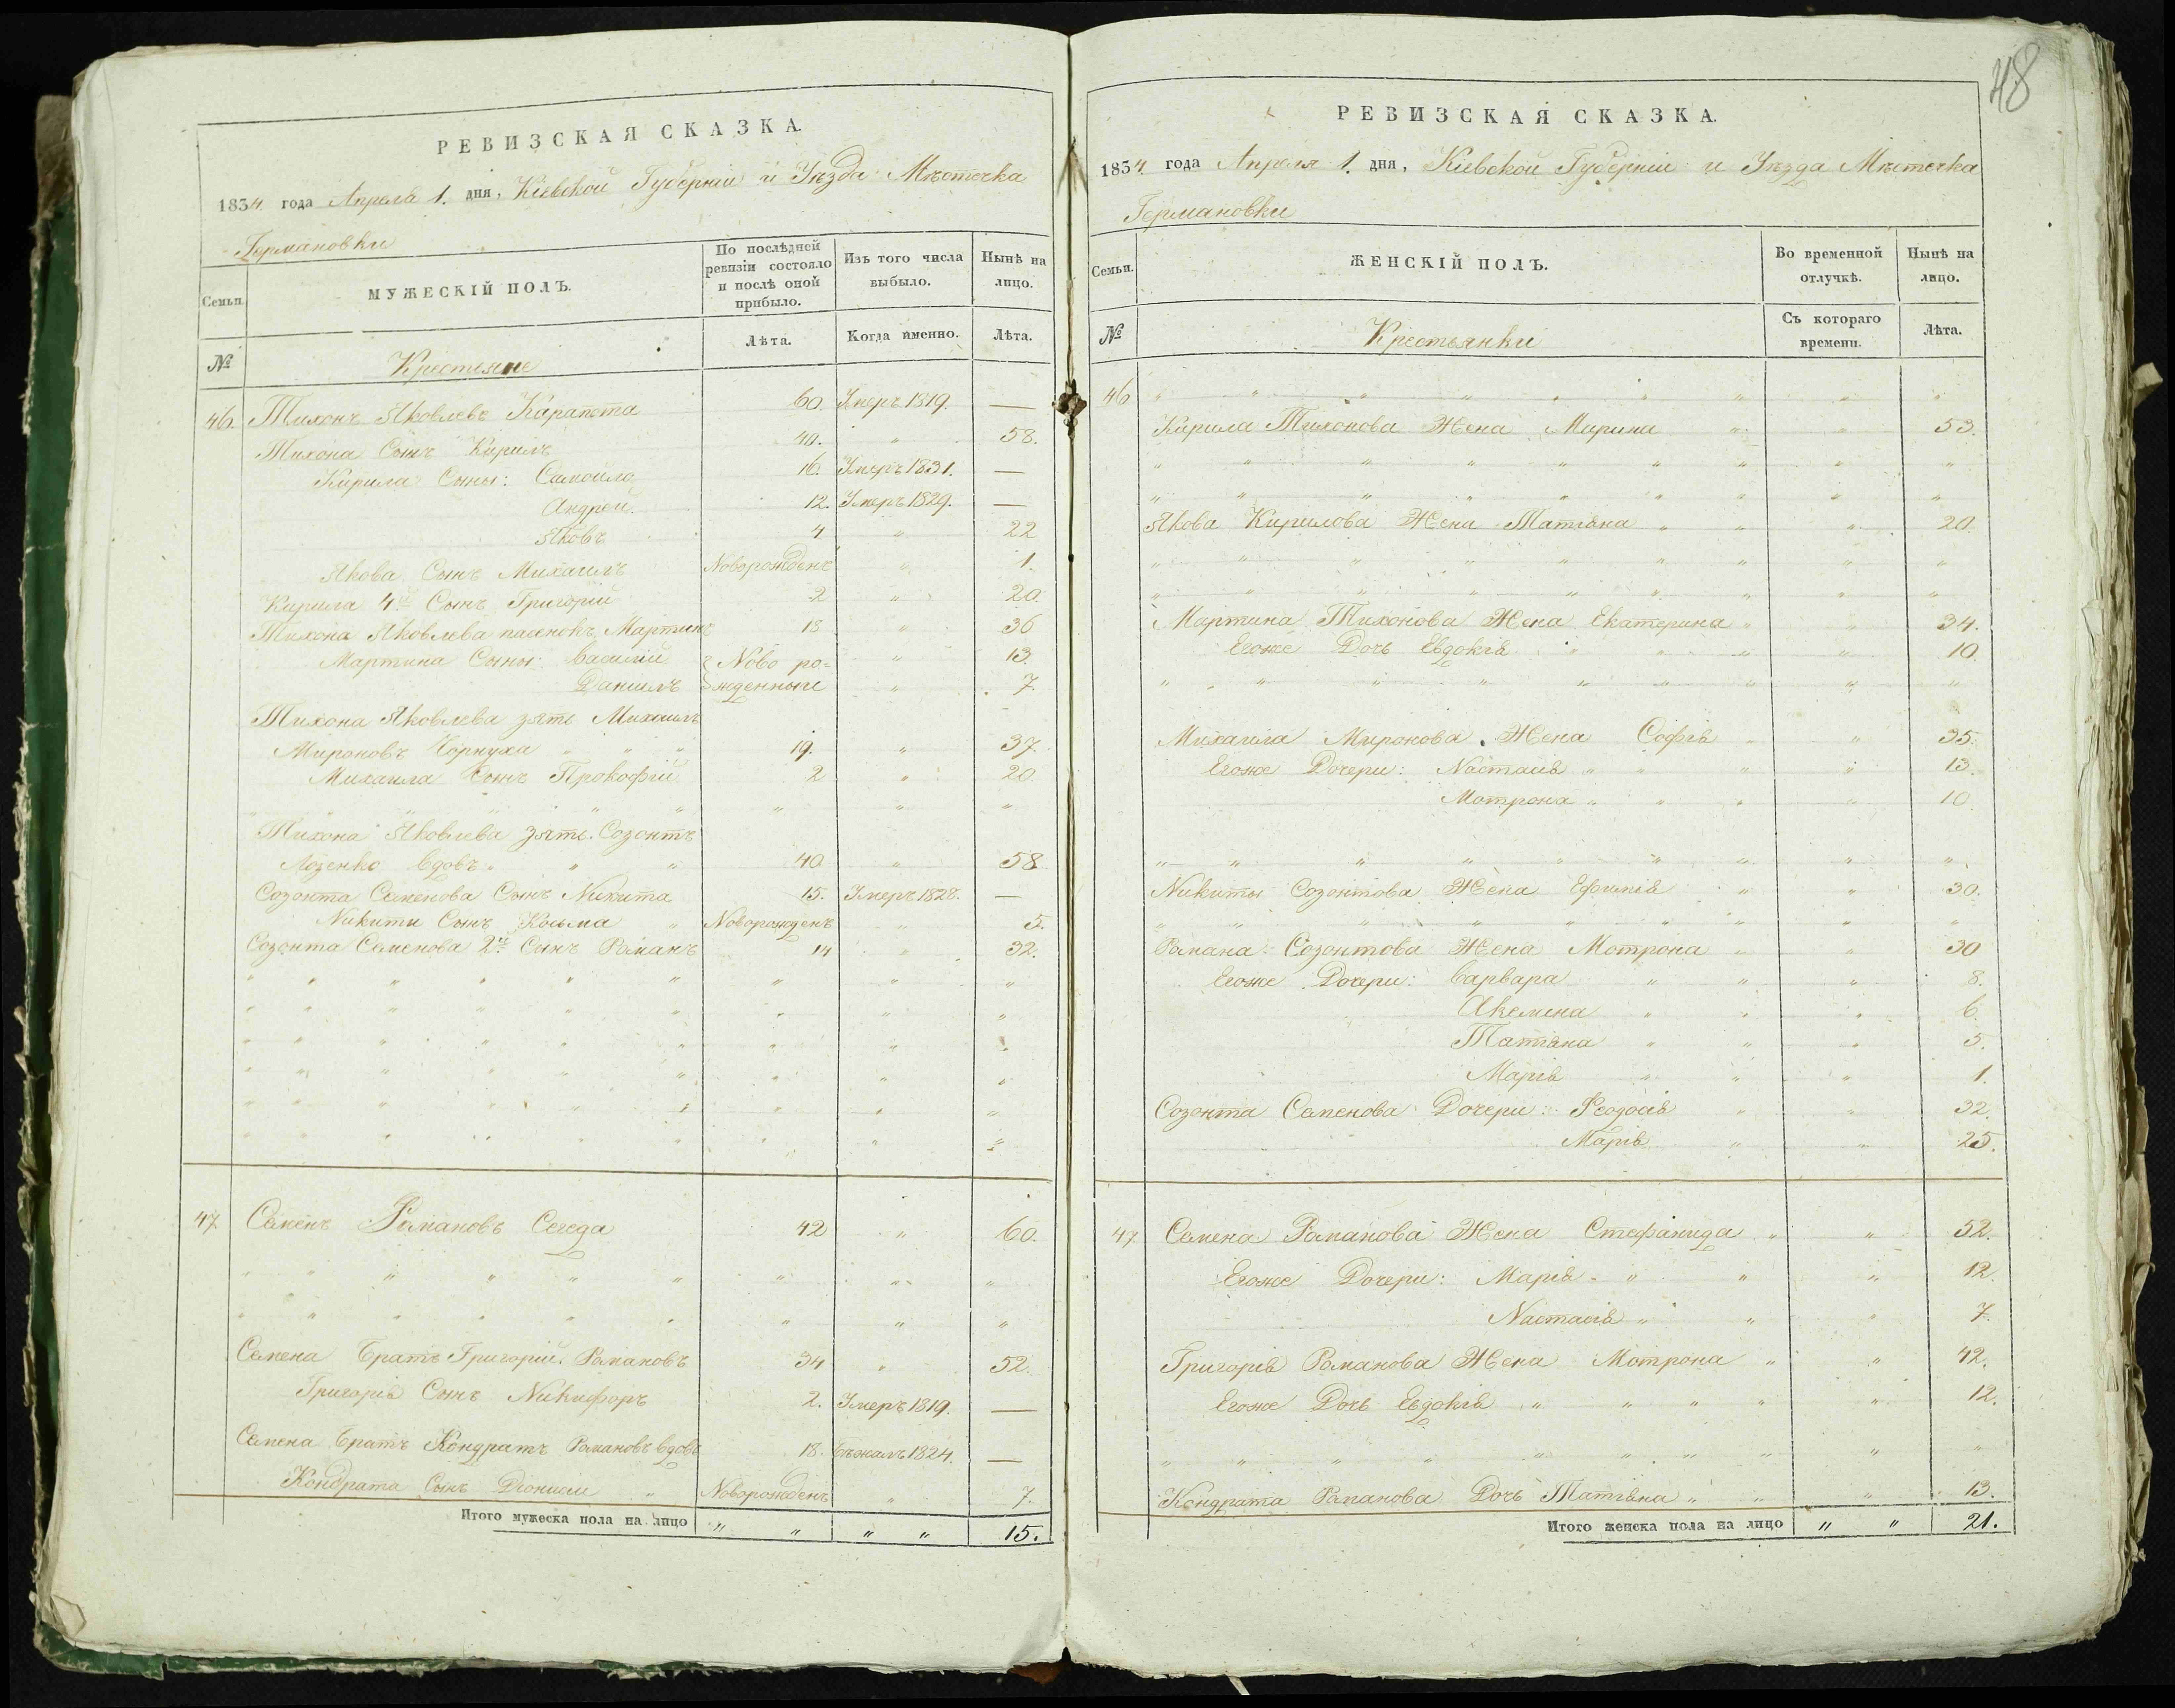 48
РЕВИЗСКАЯ СКАЗКА.
1834 года Апреля 1. дня, Кіевской Губерніи и Уѣзда Мѣстечка
Германовки
Семьи.
МУЖЕСКІЙ ПОЛЪ.
По послѣдней ревизіи состояло и послѣ оной прибыло.
Изъ того числа выбыло.
Нынѣ на лицо.
№
Крестьяне
Лѣта.
Когда именно.
Лѣта.
46. Тихонъ Яковлевъ Карапота 60. Умеръ 1819. —
Тихона Сынъ Кирилъ 40. " 58.
Кирила Сыны: Самоила 16. Умеръ 1831. —
Андрей. 12. Умеръ 1829. —
Яковъ 4 " 22
Якова Сынъ Михаилъ Новорожденъ " 1.
Кирила 4й Сынъ Григорій 2 " 20.
Тихона Яковлева пасенокъ Мартинъ 18 " 36
Мартина Сыны: Василій Ново ро= " 13.
Данилъ жденныи " 7.
Тихона Яковлева зять Михаилъ
Мироновъ Чорнуха " " " 19. " 37.
Михаила Сынъ Прокофій 2 " 20.
" " " " " " " " "
Тихона Яковлева зять Созонтъ
Лозенко вдовъ " " " 40 " 58
Созонта Семенова Сынъ Никита 15. Умеръ 1828. —
Никиты Сынъ Косьма " Новорожденъ " 5.
Созонта Семенова 2й Сынъ Романъ 14 " 32.
" " " " " " " " "
" " " " " " " " "
" " " " " " " " "
" " " " " " " " "
" " " " " " " " "
" " " " " " " " "
47 Семенъ Романовъ Сегеда 42 " 60.
" " " " " " " " "
" " " " " " " " "
Семена Братъ Григорій Романовъ 34 " 52.
Григорія Сынъ Никифоръ 2. Умеръ 1819. —
Семена Братъ Кондратъ Романовъ вдовъ 18. Бѣжалъ 1824. —
Кондрата Сынъ Діонисій " Новорожденъ " 7.
Итого мужеска пола на лицо " " " " 15.
РЕВИЗСКАЯ СКАЗКА.
1834 года Апреля 1. дня, Кіевской Губерніи и Уѣзда Мѣстечка
Германовки
Семьи.
ЖЕНСКІЙ ПОЛЪ.
Во временной отлучкѣ.
Нынѣ на лицо.
№
Крестьянки
Съ котораго времени.
Лѣта.
46 " " " " " " " " "
Кирила Тихонова Жена Марина " " 53.
" " " " " " " " "
" " " " " " " " "
Якова Кирилова Жена Татіана " " " 20.
" " " " " " " " "
" " " " " " " " "
Мартина Тихонова Жена Екатерина " " 34.
Егоже Дочь Евдокія " " " " 10.
" " " " " " " " "
Михаила Миронова Жена Софія " " 35.
Егоже Дочери: Настасія " " " " 13.
Мотрона " " " " 10.
" " " " " " " " "
Никиты Созонтова Жена Ефимія " " 30.
" " " " " " " " "
Романа Созонтова Жена Мотрона " " 30
Егоже Дочери: Варвара " " " 8.
Акемена " " " 6.
Татіана " " " 5.
Марія " " " 1.
Созонта Семенова Дочери: Феодосія " " 32.
Марія " " 25.
47 Семена Романова Жена Стефанида " " 52.
Егоже Дочери: Марія " " " 12.
Настасія " " " 7.
Григорія Романова Жена Мотрона " " 42.
Егоже Дочь Евдокія " " " " " 12.
" " " " " " " " " "
Кондрата Романова Дочь Татіана " " " 13.
Итого женска пола на лицо " " 21.